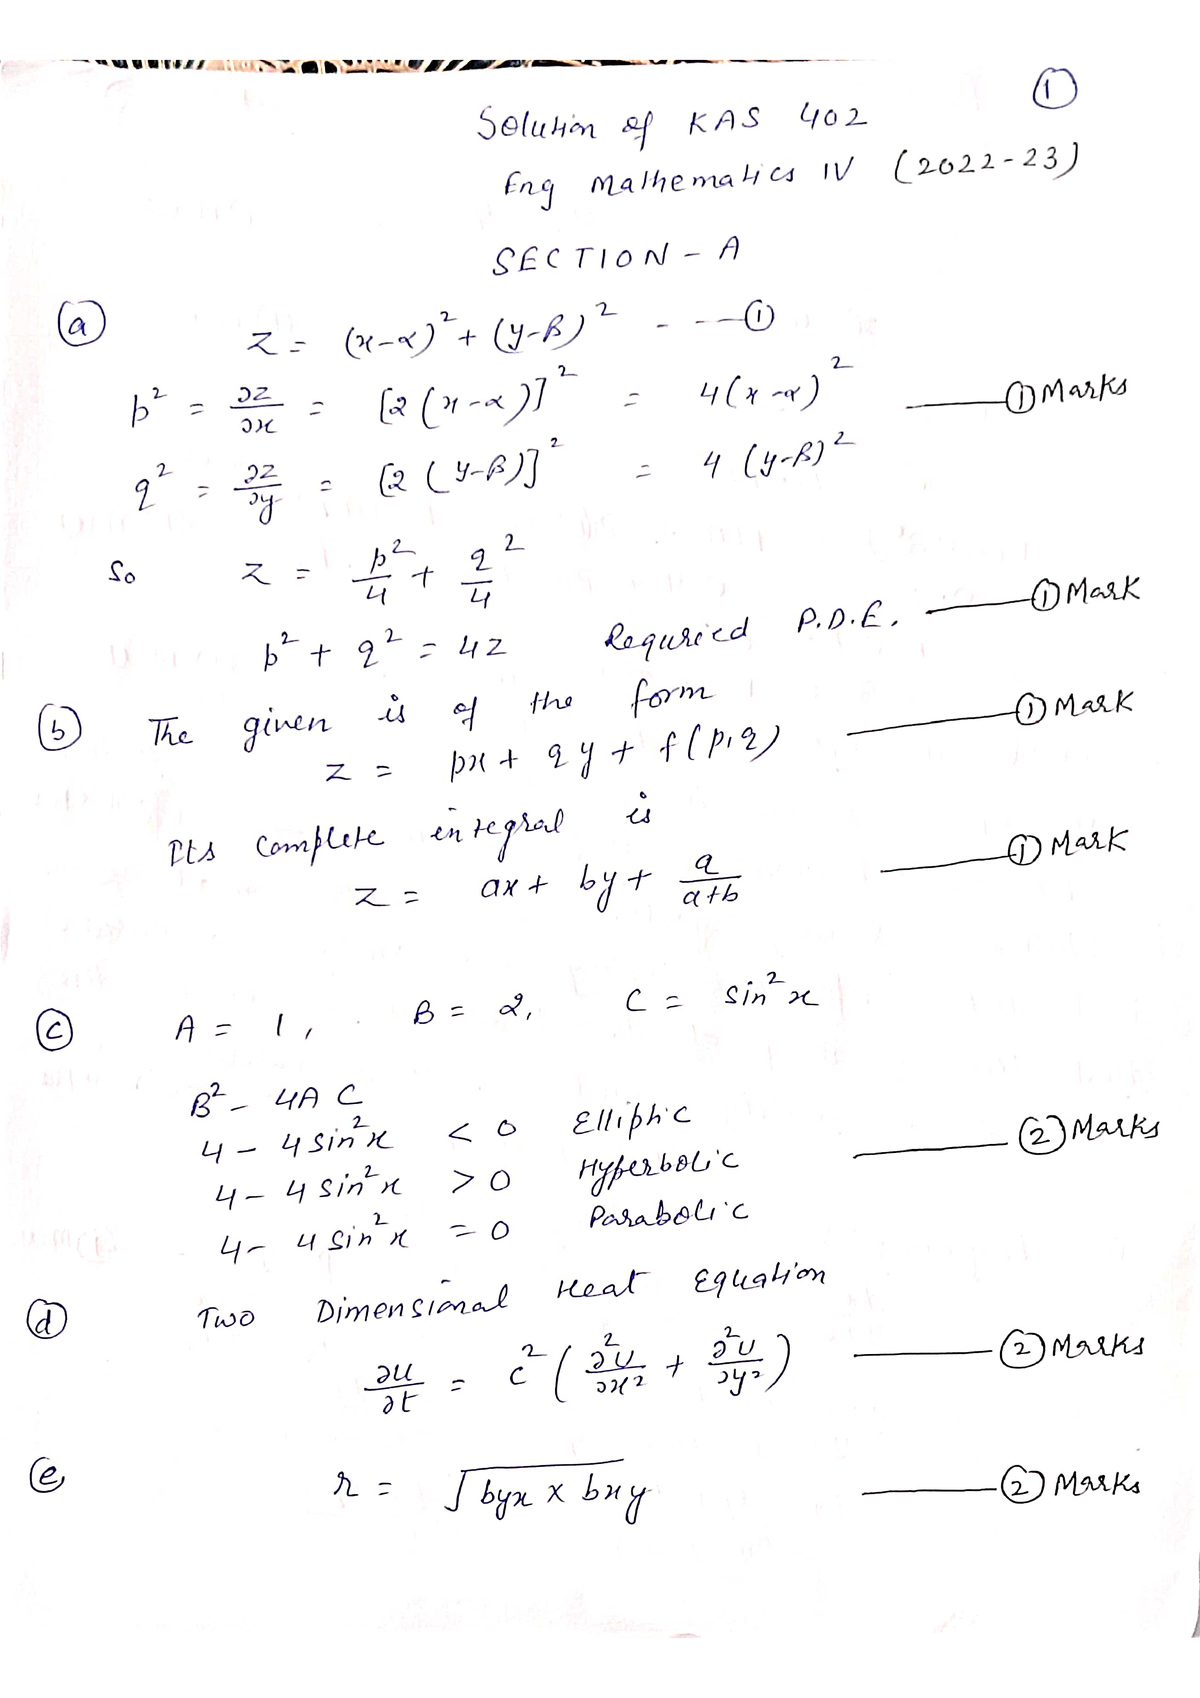 ①
Solution of KAS 402
Eng Mathematics IV (2022-23)
SECTION - A
(a) z = (x-α)² + (y-β)² - - — ①
p² = ∂z/∂x = [2(x-α)]² = 4(x-α)² —— ① Marks
q² = ∂z/∂y = [2(y-β)]² = 4(y-β)²
So z = p²/4 + q²/4
p² + q² = 4z Requried P.D.E. —— ① Mark
(b) The given is of the form
z = px + qy + f(p,q) —— ① Mark
Its complete integral is
z = ax + by + a/(a+b) —— ① Mark
(c) A = 1, B = 2, C = sin²x
B² - 4AC
4 - 4sin²x < 0 Elliptic
4 - 4sin²x > 0 Hyperbolic —— ② Marks
4 - 4sin²x = 0 Parabolic
(d) Two Dimensional Heat Equation
∂u/∂t = c²(∂²u/∂x² + ∂²u/∂y²) —— ② Marks
(e) r = √(byx × bxy) —— ② Marks